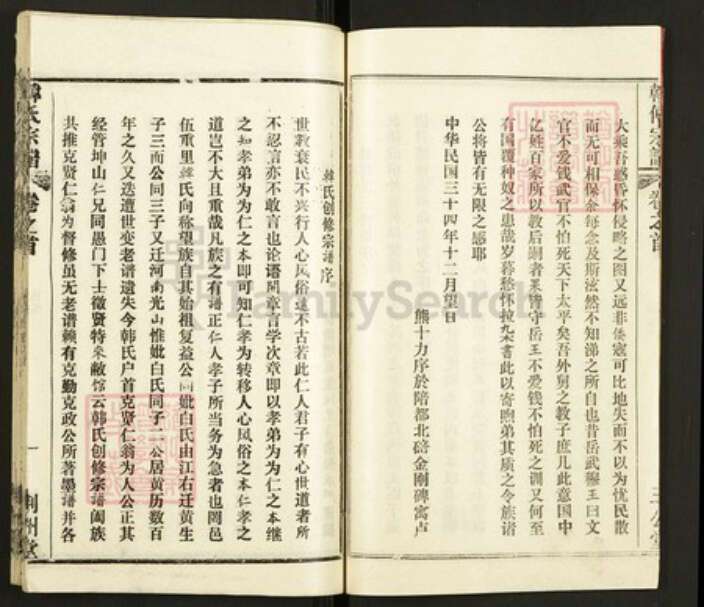 大乘吾惑昏怀侵略之图又远非倭寇可比地失而不以为忧民散
而无可相保余每念及斯泫然不知涕之所自也昔岳武穆王曰文
官不爱钱武官不怕死天下太平矣吾外舅之教子庶几此意国中
亿姓百家所以教后嗣者果皆守岳王不爱钱不怕死之训又何至
有国覆种奴之患哉岁暮愁怀拉杂书此以寄煦弟其质之令族诸
公将皆有无限之感耶
中华民国三十四年十二月望日
熊十力序於陪都北碚金刚碑寓卢
韩氏创修宗谱序
世教衰民不兴行人心风俗远不古若此仁人君子有心世道者所
不忍言亦不敢言也论语开章言学次章即以孝弟为为仁之本继
之知孝弟为为仁之本即可知仁孝为转移人心风俗之本仁孝之
道岂不大且重哉凡族之有谱正仁人孝子所当务为急者也罔邑
伍重里韩氏向称望族自其始祖复益公同妣白氏由江右迁黄生
子三而公同三子又迁河南光山惟妣白氏同子二公居黄历数百
年之久又迭遭世变老谱遗失今韩氏户首克贤仁翁为人公正其
经管坤山仁兄同愚门下士徵贤特来敝馆云韩氏创修宗谱阖族
共推克贤仁翁为督修虽无老谱赖有克勤克政公所著墨谱并各
韩氏宗谱
卷之首
一
荆州堂
卷之首
FamilySearch